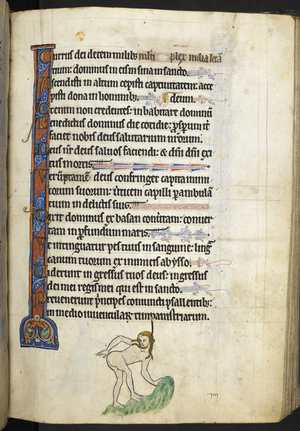 Currus dei decem milib; milia leta
tium: dominus in eis in sina in sancto.
Ascendisti in altum cepisti captiuitatem: acce
pisti dona in hominib; deum.
Etenim non credentes: inhabitare dominū
Benedictus dominus die cotidie: prosperum
faciet nobis deus salutarium nr̄orum.
Deus nr̄ deus saluos faciendi: & dn̄i dn̄i exi
tus mortis.
deus confringet capita inimi
corum suorum: uerticem capilli perambulā
tium in delictis suis.
Dixit dominus ex basan conuertam: conuer
tam in profundum maris.
Ut intinguatur pes tuus in sanguine: ling
canum tuorum ex inimicis ab ipso.
Uiderunt ingressus tuos deus: ingressus
dei mei regis mei qui est in sancto.
Preuenerunt principes coniuncti psallentib;
in medio iuuencularum timpanistriarum.